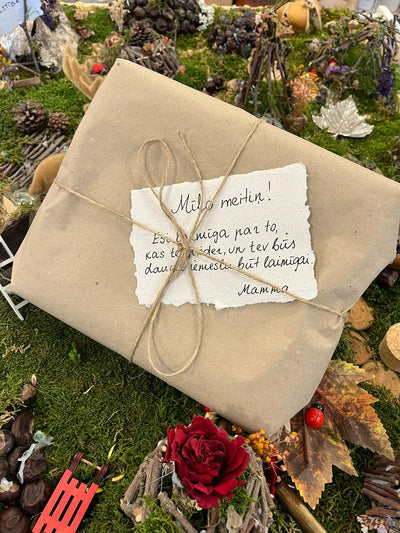 Mīļo meitiņ!
Esi laimīga par to,
kas tev ir, un tev būs
daudz iemeslu būt laimīgai.
Mamma